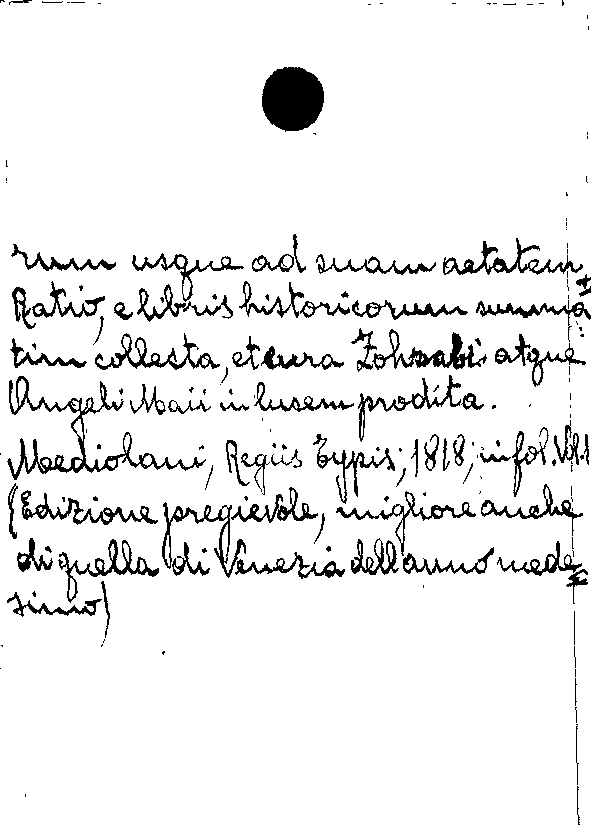 rum usque ad suam aetatem
Ratio, e libris historicorum summa=
tim collecta, et cura Zohrabi atque
Angeli Maii in lucem prodita.
Mediolani, Regiis Typis, 1818, in fol. Vol. 1
(Edizione pregievole, migliore anche
di quella di Venezia dell'anno mede=
simo)